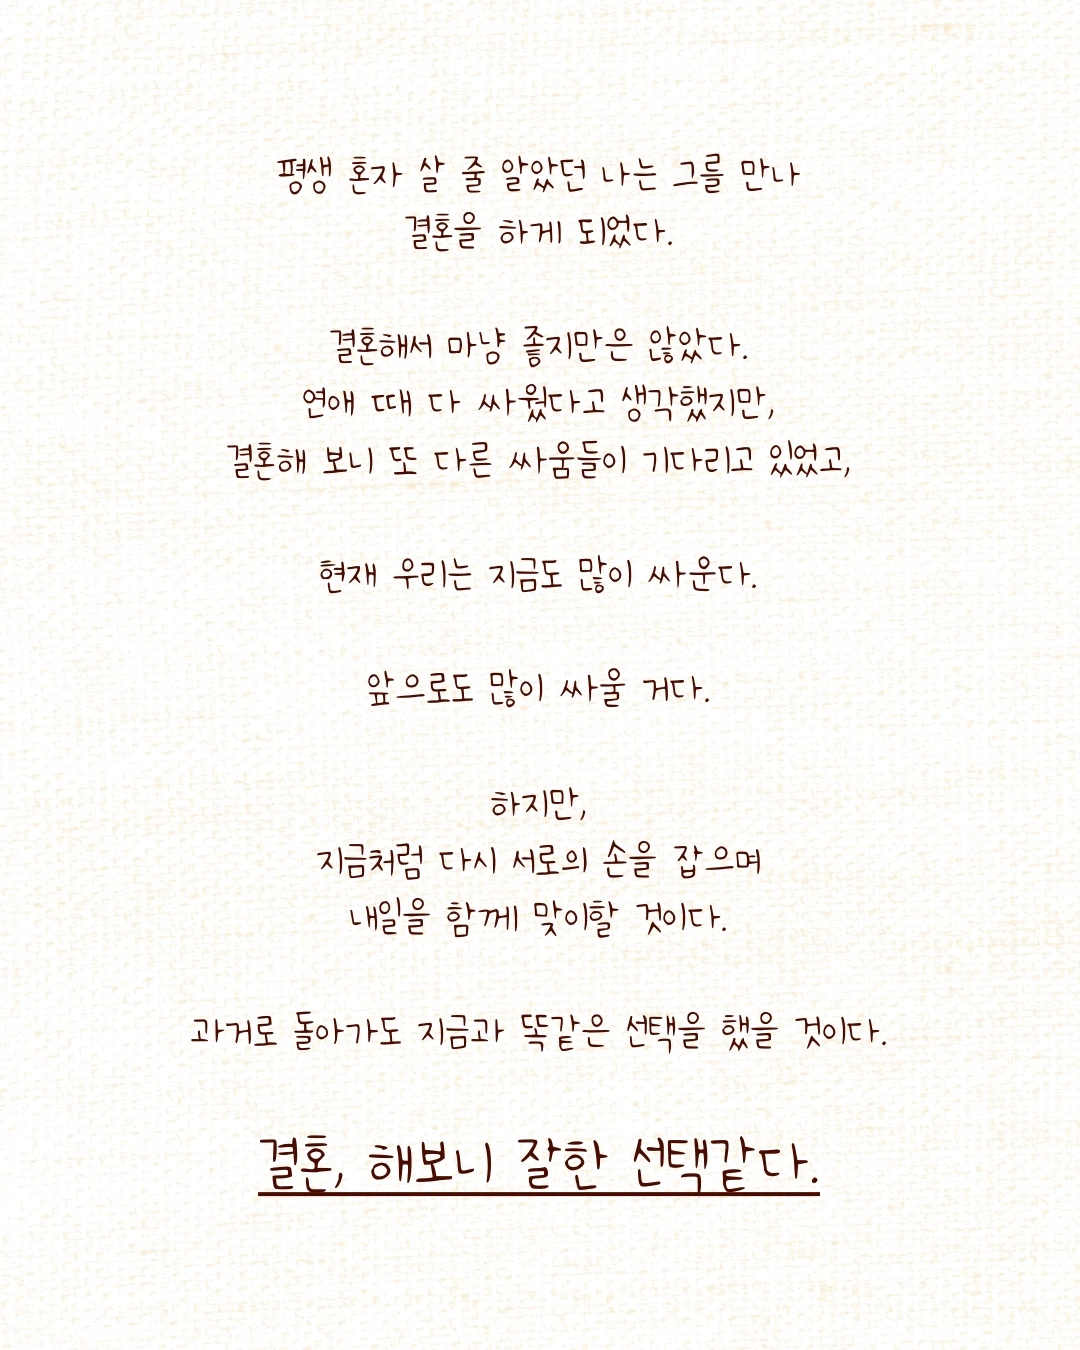 평생 혼자 살 줄 알았던 나는 그를 만나
결혼을 하게 되었다.
결혼해서 마냥 좋지만은 않았다.
연애 때 다 싸웠다고 생각했지만,
결혼해 보니 또 다른 싸움들이 기다리고 있었고,
현재 우리는 지금도 많이 싸운다.
앞으로도 많이 싸울 거다.
하지만,
지금처럼 다시 서로의 손을 잡으며
내일을 함께 맞이할 것이다.
과거로 돌아가도 지금과 똑같은 선택을 했을 것이다.
결혼, 해보니 잘한 선택같다.